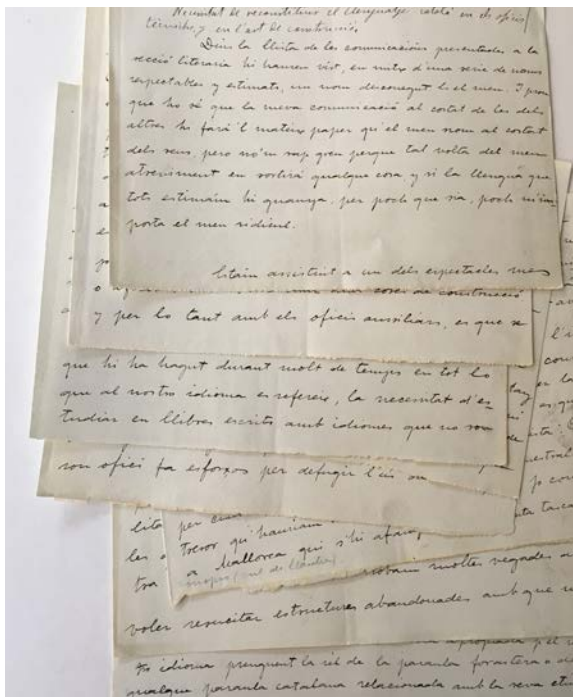 Necesitat de reconstituir el llenguatge català en els oficis
tècnichs, y en l'art de construcció.
Dins la llista de les comunicacions presentades a la
secció literaria hi hauran vist, en mitx d'una serie de noms
respectables y estimats, un nom desconegut es el meu. I prou
que ho sé que la meva comunicació al costat de les dels
altres ho fará 'l mateix paper qu'el meu nom al costat
dels seus, pero no'm sap greu perque tal volta del meu
atreviment en sortirá qualque cosa y si la llengua que
tots estimam hi guanya, per poch que sia, poch m'im-
porta el meu ridicul.
Estam assistint a un dels espectacles mes
coses de construcció
y per lo tant amb els oficis auxiliars, es que
que hi ha hagut durant molt de temps en tot lo
que al nostro idioma es refereix, la necesitat d'es-
tudiar en llibres escrits amb idiomes que no son
son ofici fa esforços per defugir l'us
per
tresor qu'hauriam
a Mallorca qui s'hi
moltes vegades a
voler resucitar estructures abandonades amb que
idioma prenguent la rel de la paraula forastera o
qualque paraula catalana relacionada amb la seva